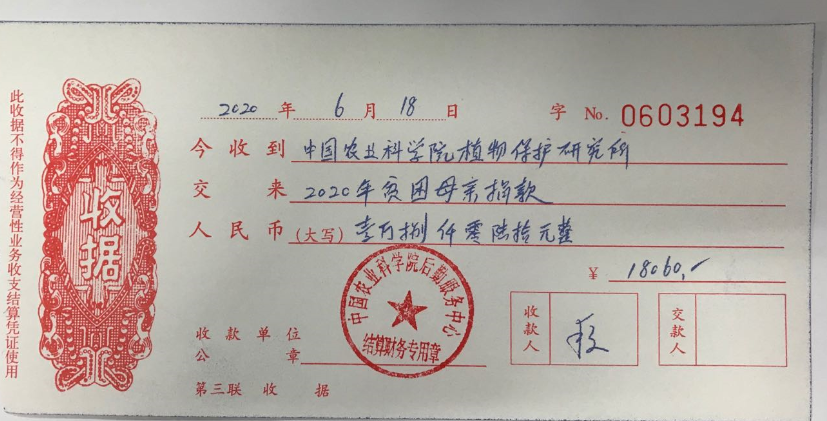 此收据不得作为经营性业务收支结算凭证使用
收据
2020 年 6 月 18 日 字 No. 0603194
今收到 中国农业科学院植物保护研究所
交来 2020年贫困母亲捐款
人民币(大写) 壹万捌仟零陆拾元整
¥ 18060.-
中国农业科学院后勤服务中心
结算财务专用章
收款单位
公章
收款人
交款人
第三联 收据